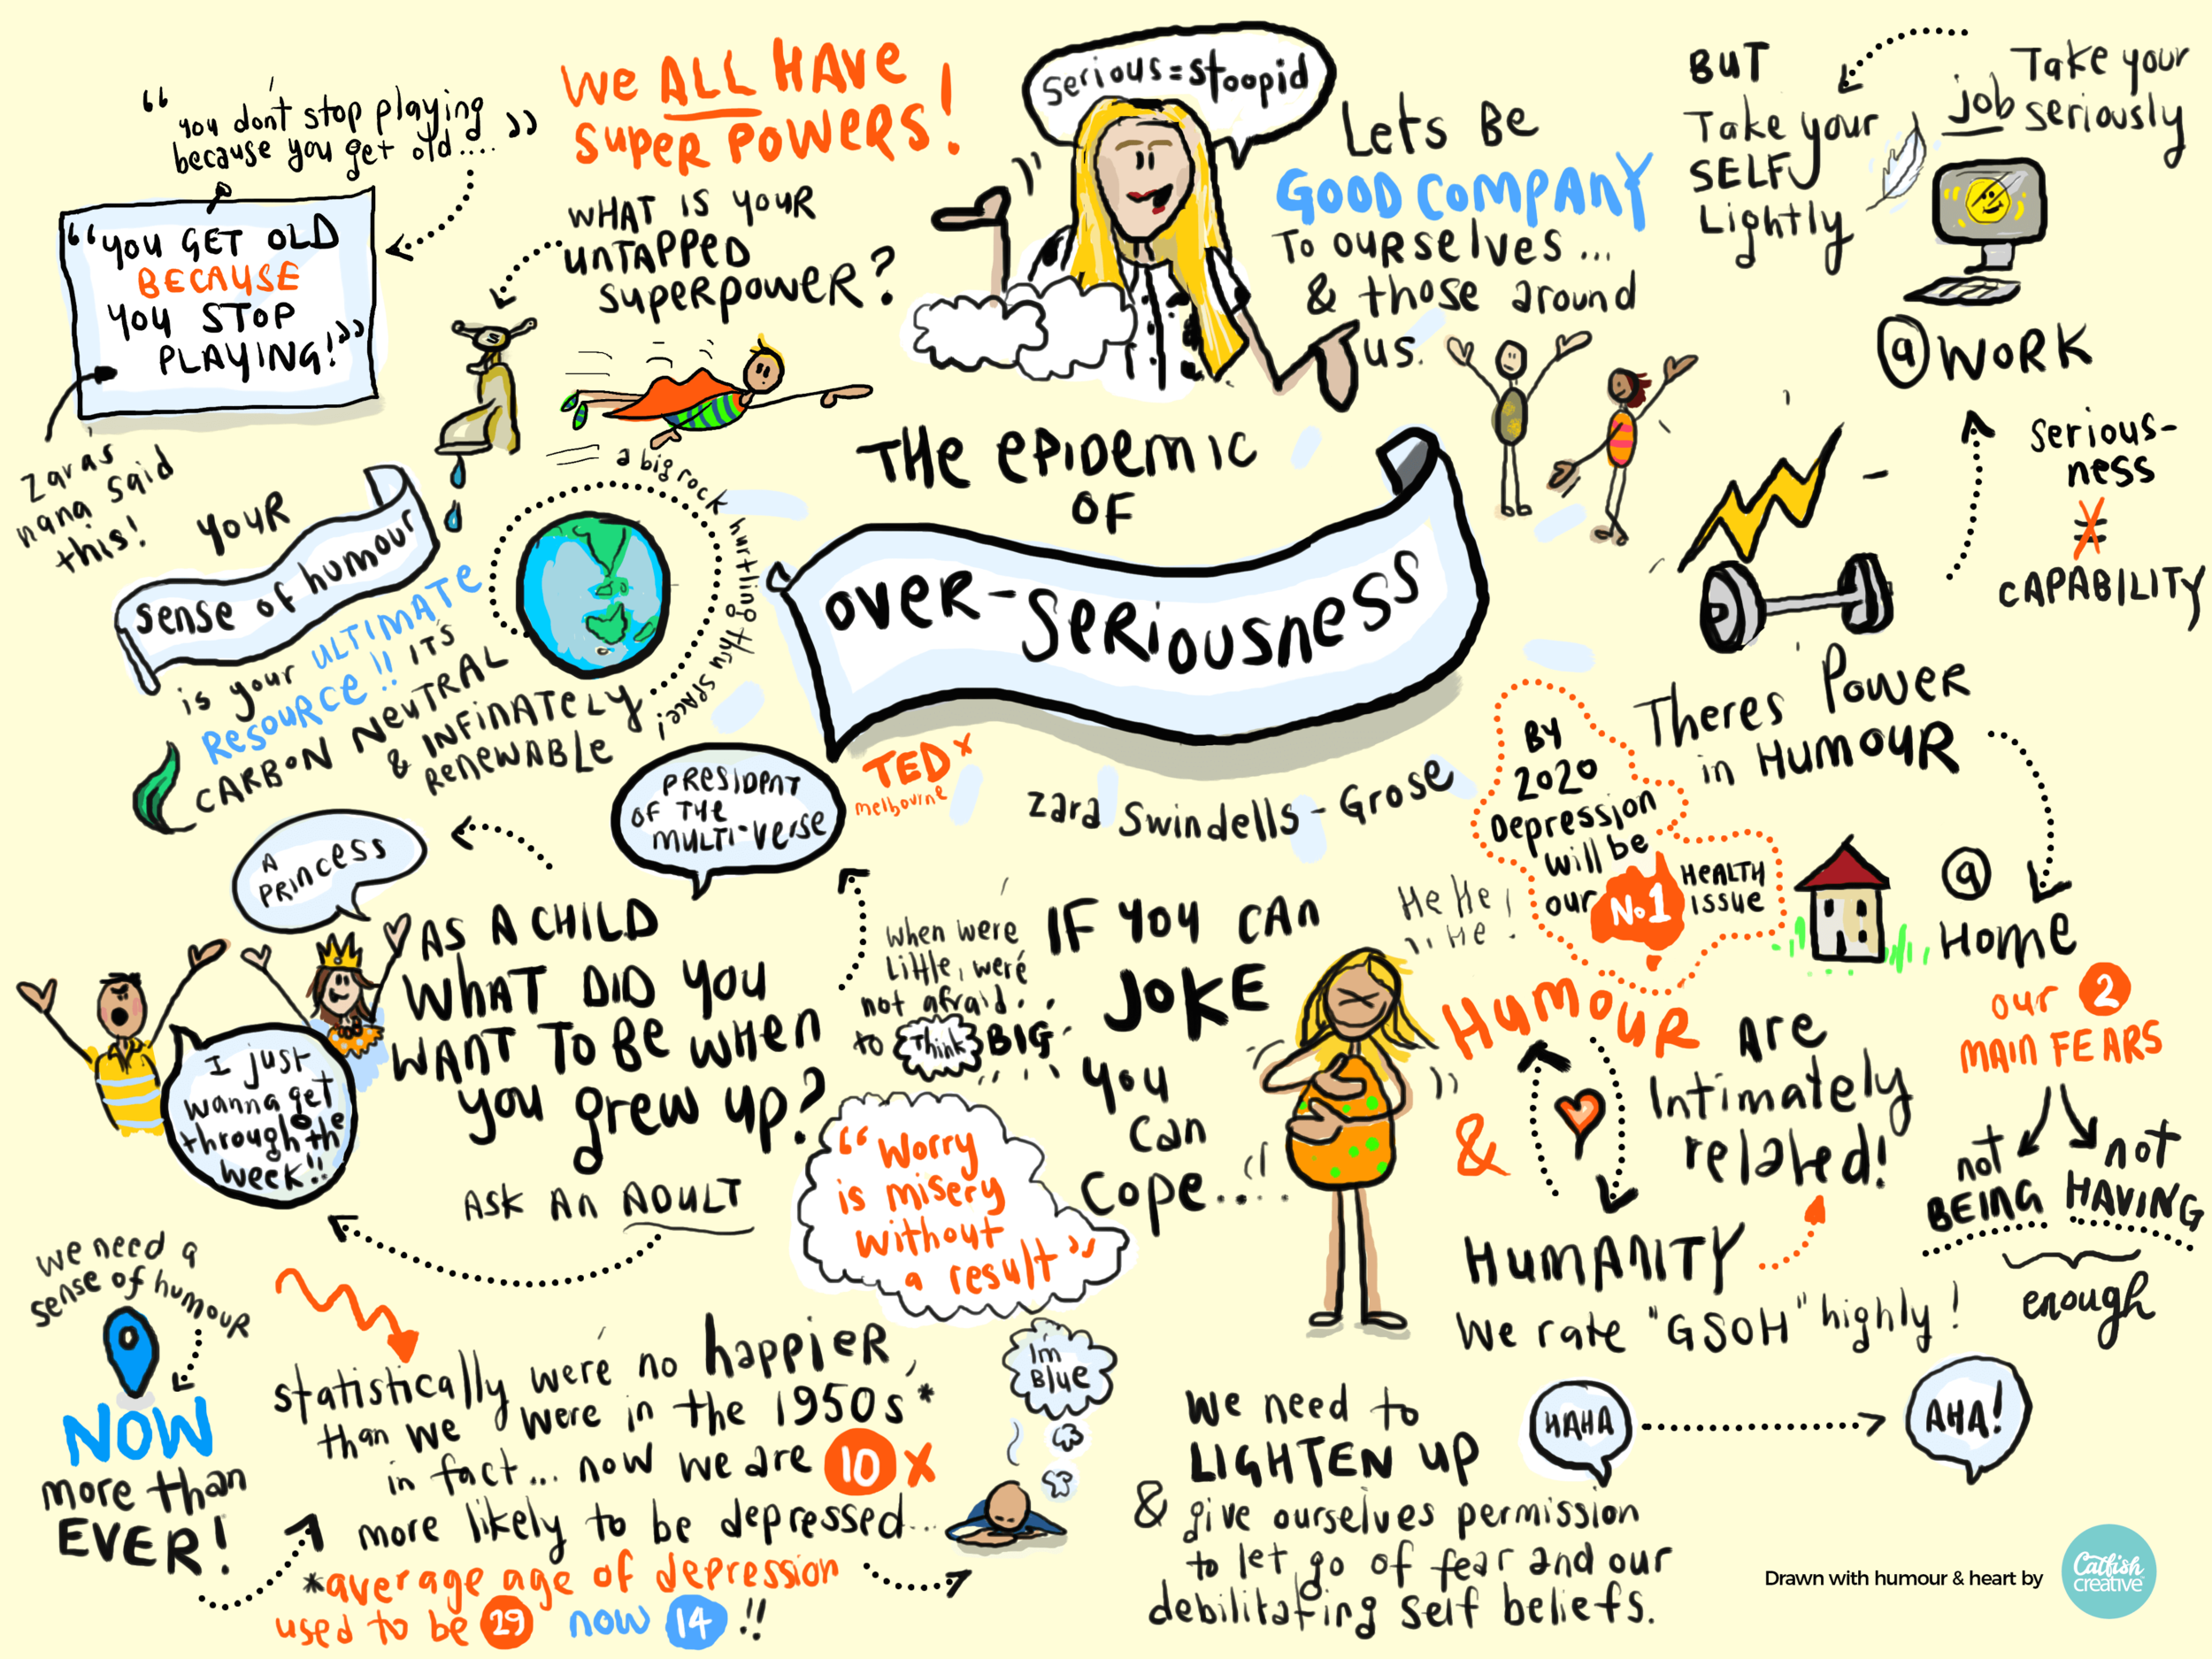 “you don't stop playing
because you get old....”
“YOU GET OLD
BECAUSE
YOU STOP
PLAYING!”
Zara's
nana said
this!
WE ALL HAVE
SUPER POWERS!
WHAT IS YOUR
UNTAPPED
SUPERPOWER?
serious=stoopid
LETS BE
GOOD COMPANY
TO OURSELVES...
& those around
us.
Take your
job seriously
BUT
Take your
SELF
Lightly
@ WORK
serious-
ness
≠
CAPABILITY
THE EPIDEMIC
OF
OVER-SERIOUSNESS
TEDx
melbourne
Zara Swindells-Grose
YOUR
sense of humour
is your ULTIMATE
RESOURCE!! IT'S
CARBON NEUTRAL
& INFINATELY
RENEWABLE
a big rock hurtling thru space!
PRESIDENT
OF THE
MULTI-VERSE
A
PRINCESS
AS A CHILD
WHAT DID YOU
WANT TO BE WHEN
you grew up?
ASK AN ADULT
I just
wanna get
through the
week!!
When we're
Little, we're
not afraid..
to Think BIG
IF YOU CAN
JOKE
you
can
cope....
He He!
He!
“Worry
is misery
without
a result”
Theres Power
in HUMOUR
BY
2020
Depression
will be
our No.1 HEALTH
ISSUE
@
HOME
our 2
MAIN FEARS
not
BEING
not
HAVING
enough
HUMOUR
&
HUMANITY
ARE
Intimately
related!
We rate "GSOH" highly!
we need a
sense of humour
NOW
more than
EVER!
statistically we're no happier,
than we were in the 1950s*
in fact... now we are 10 x
more likely to be depressed...
*average age of depression
used to be 29 now 14!!
Im
Blue
We need to
LIGHTEN UP
& give ourselves permission
to let go of fear and our
debilitating self beliefs.
HAHA
AHA!
Drawn with humour & heart by
Catfish
creative